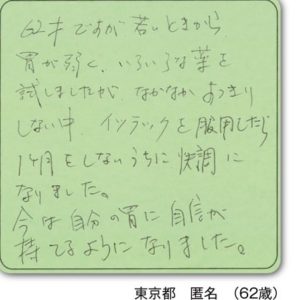 62才ですが若いときから
胃が弱く、いろいろな薬を
試しましたが、なかなかすっきり
しない中、イツラックを服用したら
1ヶ月もしないうちに快調に
なりました。
今は自分の胃に自信が
持てるようになりました。
東京都 匿名 （62歳）